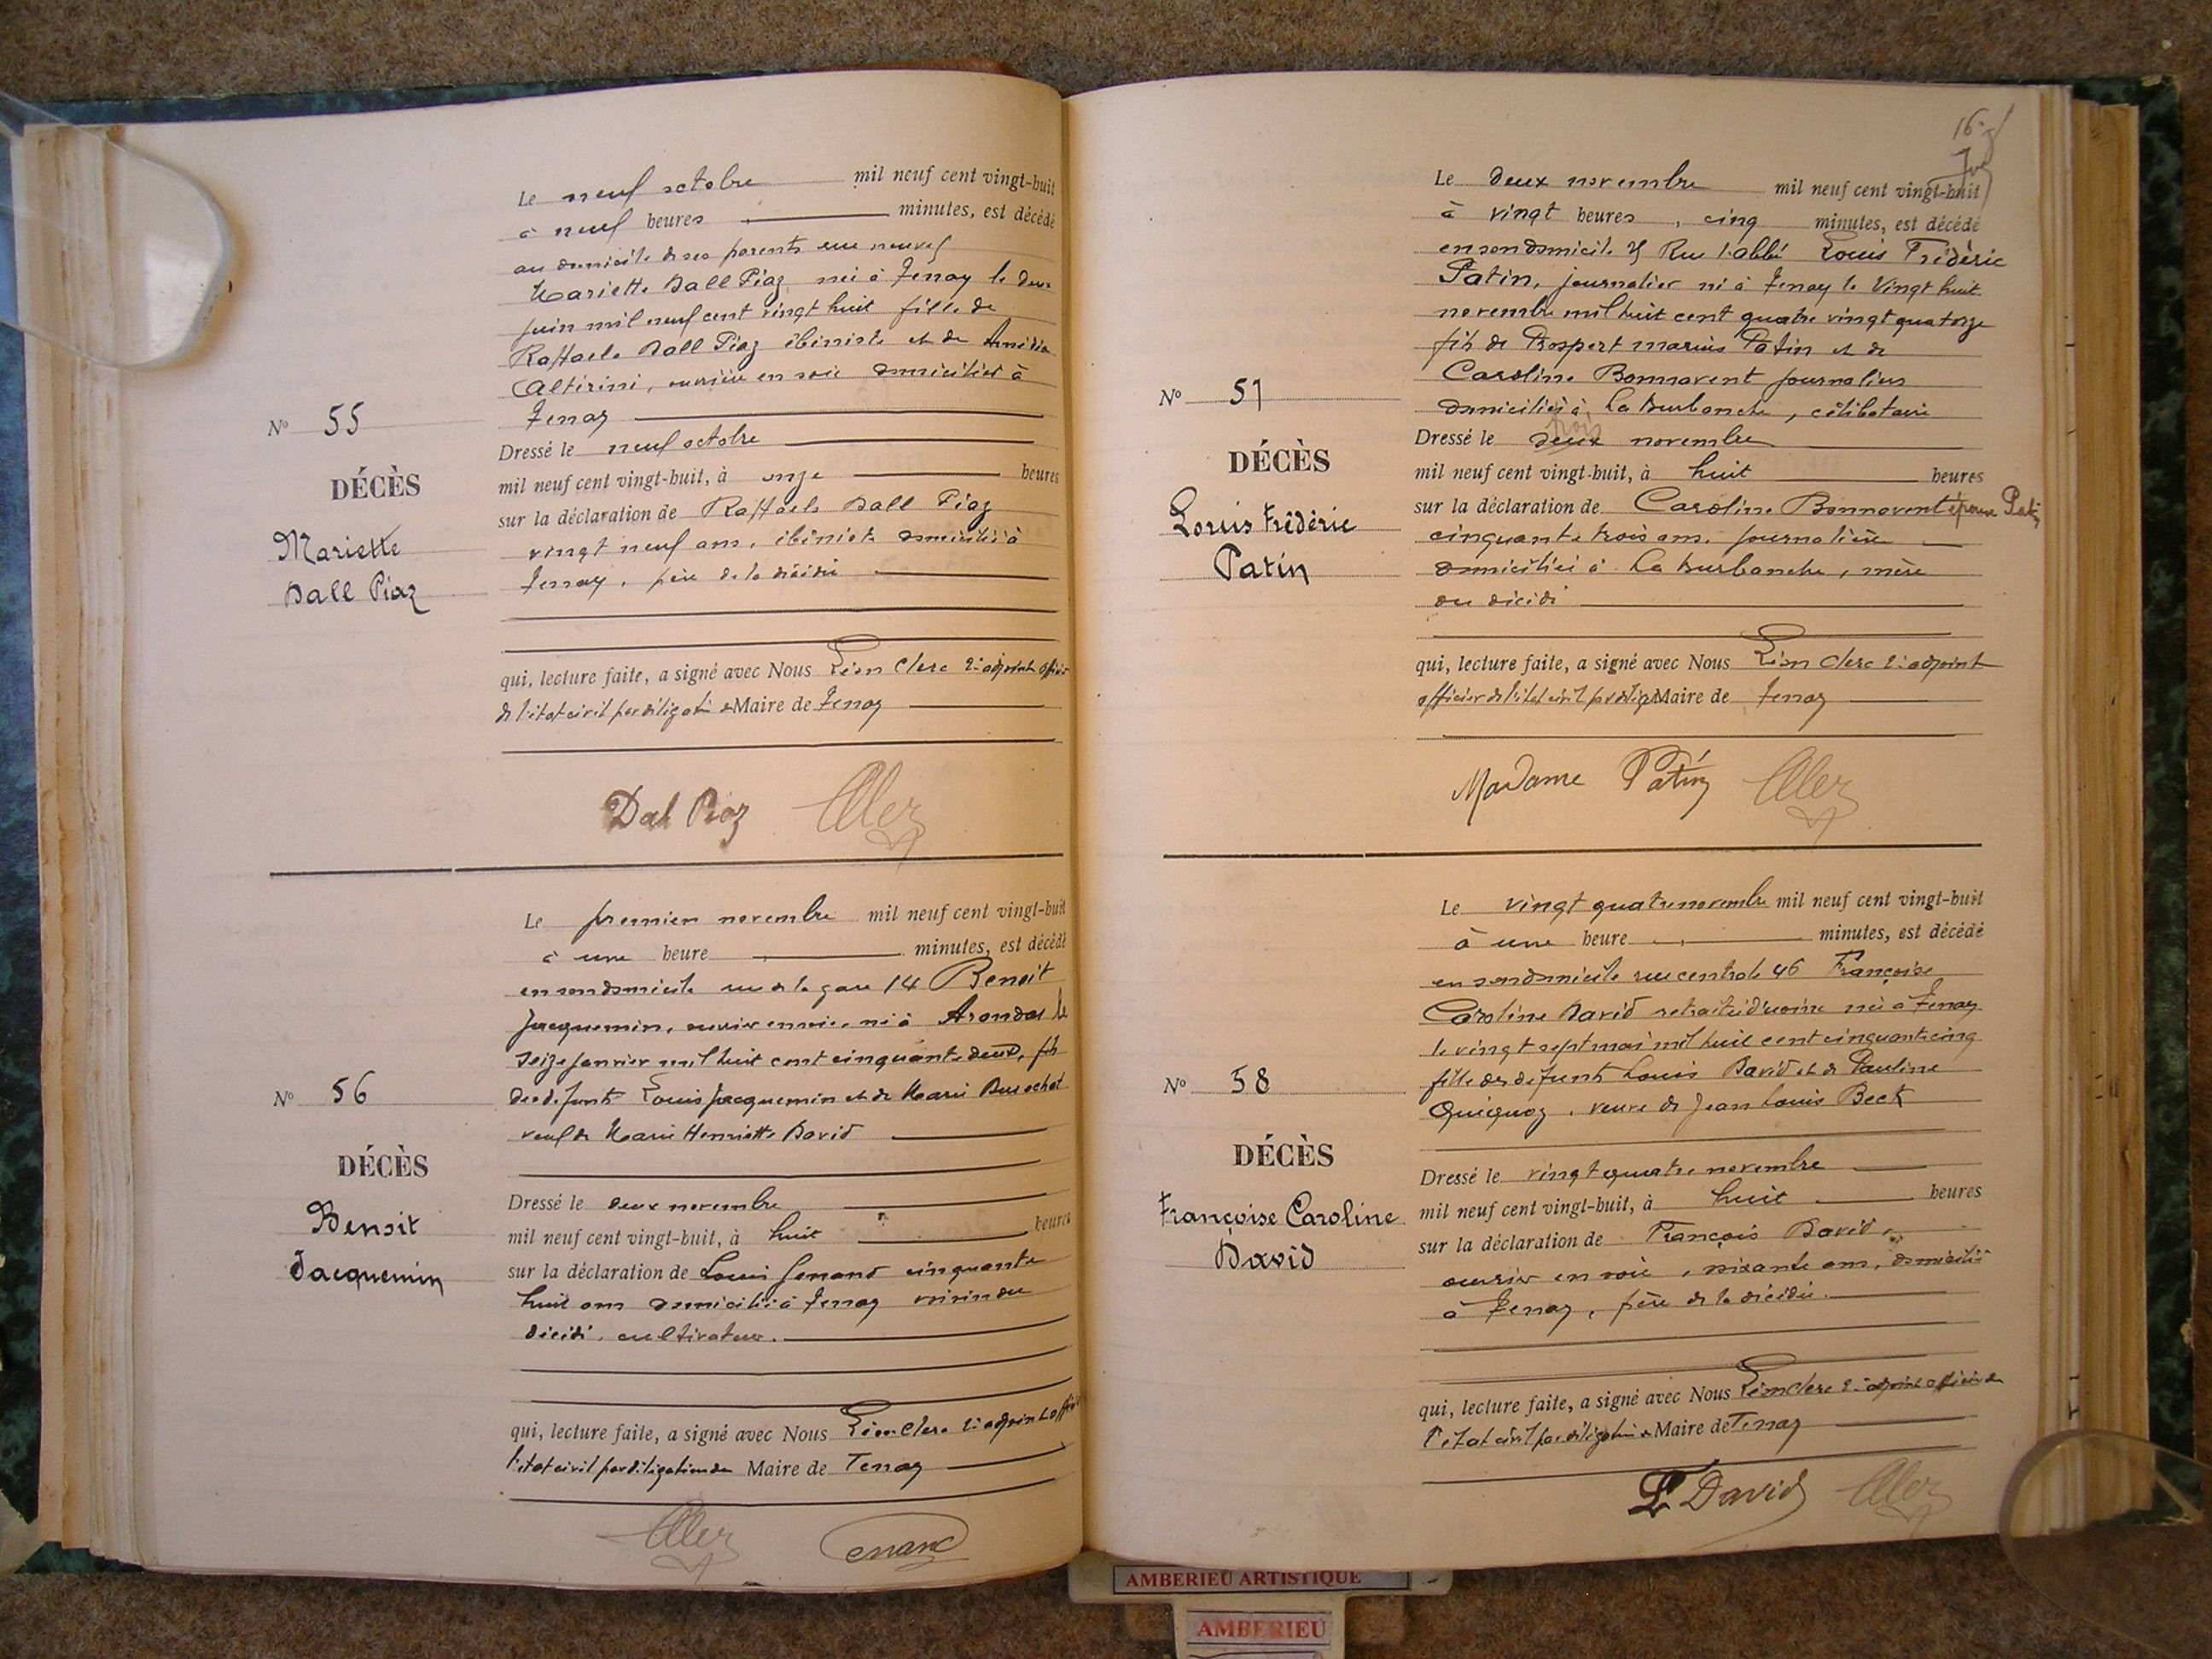 Le neuf octobre mil neuf cent vingt-huit
à neuf heures minutes, est décédé
au domicile de ses parents rue neuve
Mariette Dall Piaz née à Tenay le deux
juin mil neuf cent vingt huit fille de
Raffaele Dall Piaz ébéniste et de
ouvrière en soie domiciliés à
Tenay
Nº 55
DÉCÈS
Mariette
Dall Piaz
Dressé le neuf octobre
mil neuf cent vingt-huit, à onze heures
sur la déclaration de Raffaele Dall Piaz
vingt neuf ans, ébéniste domicilié à
Tenay, père de la décédée
qui, lecture faite, a signé avec Nous Léon Clerc 2e adjoint officier
de l'état civil par délégation Maire de Tenay
Dal Piaz
Le premier novembre mil neuf cent vingt-huit
à une heure minutes, est décédé
en son domicile rue de la gare 14 Benoit
Jacquemin, ouvrier en soie, né à Arandas le
seize janvier mil huit cent cinquante deux, fils
des defunts Louis Jacquemin et de Marie
veuf de Marie Henriette David
Nº 56
DÉCÈS
Benoit
Jacquemin
Dressé le deux novembre
mil neuf cent vingt-huit, à huit heures
sur la déclaration de Louis cinquante
huit ans domicilié à Tenay voisin du
décédé, cultivateur.
qui, lecture faite, a signé avec Nous Léon Clerc 2e adjoint officier
l'état civil par délégation du Maire de Tenay
16
Le deux novembre mil neuf cent vingt-huit
à vingt heures, cinq minutes, est décédé
en son domicile Rue l'abbé Louis Frédéric
Patin, journalier né à Tenay le vingt huit
novembre mil huit cent quatre vingt quatorze
fils de Prospert marius Patin et de
Caroline Bonnavent journaliers
domiciliés à La burbanche, célibataire
Nº 57
DÉCÈS
Louis Frédéric
Patin
Dressé le deux trois novembre
mil neuf cent vingt-huit, à huit heures
sur la déclaration de Caroline Bonnavent épouse Patin
cinquante trois ans. journalière
domiciliée à La burbanche, mère
du décédé
qui, lecture faite, a signé avec Nous Léon Clerc 2e adjoint
officier de l'état civil par délég Maire de Tenay
Madame Patin
Le vingt quatre novembre mil neuf cent vingt-huit
à une heure minutes, est décédé
en son domicile rue centrale 46 Françoise
Caroline David retraitée d'usine née à Tenay
le vingt sept mai mil huit cent cinquante cinq
fille des defunts Louis David et de Pauline
Quiquoz, veuve de Jean Louis Beck
Nº 58
DÉCÈS
Françoise Caroline
David
Dressé le vingt quatre novembre
mil neuf cent vingt-huit, à huit heures
sur la déclaration de François David,
ouvrier en soie, soixante ans, domicilié
à Tenay, frère de la décédée.
qui, lecture faite, a signé avec Nous Léon Clerc 2e adjoint officier de
l'état civil par délégation Maire de Tenay
David
AMBERIEU ARTISTIQUE
AMBERIEU